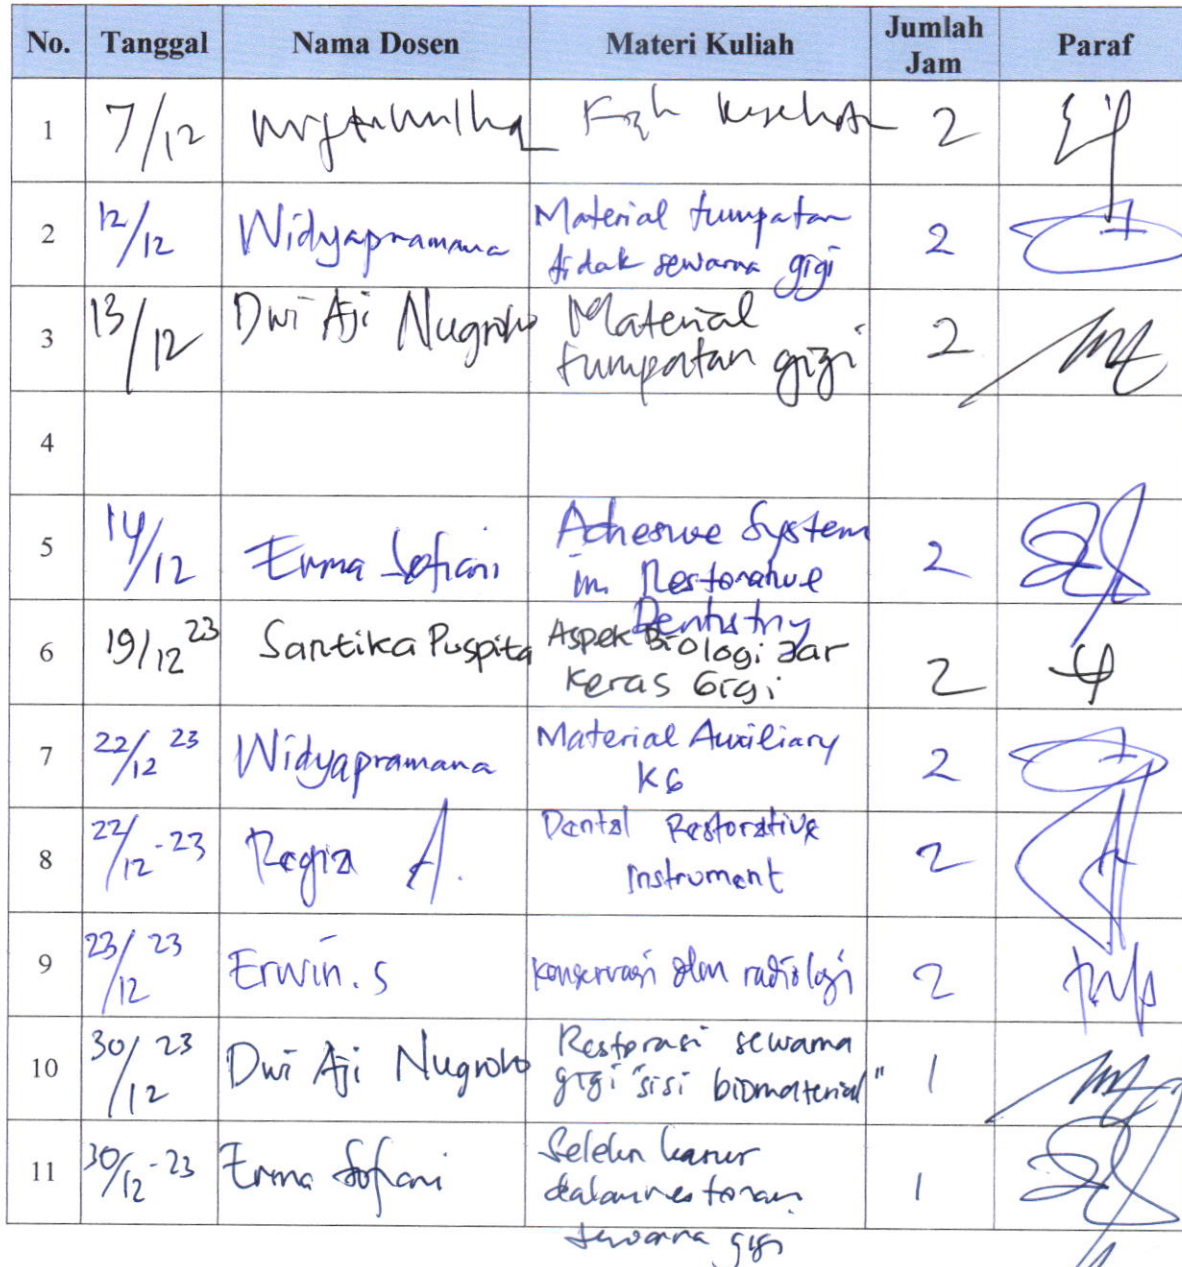 No. Tanggal Nama Dosen Materi Kuliah Jumlah Jam Paraf
1 7/12 2
2 12/12 Widyapramana Material tumpatan tidak sewarna gigi 2
3 13/12 Dwi Aji Nugroho Material tumpatan gigi 2
4
5 14/12 Erma Sofiani Adhesive System in Restorative Dentistry 2
6 19/12 23 Santika Puspita Aspek Biologi Jar Keras Gigi 2
7 22/12 23 Widyapramana Material Auxiliary KG 2
8 22/12-23 Regia A. Dental Restorative Instrument 2
9 23/12 23 Erwin.S konservasi dan radiologi 2
10 30/12 23 Dwi Aji Nugroho Restorasi sewarna gigi "sisi biomaterial" 1
11 30/12-23 Erma Sofiani dalam sewarna gigi 1